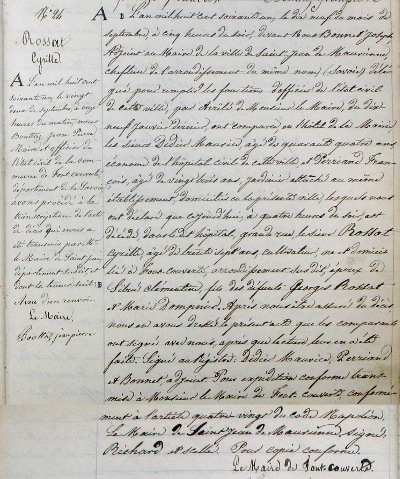 N° 24
Rossat
Cyrille
A
L'an mil huit cent
soixante un, le vingt
deux de septembre à cinq
heures du matin, nous
Bouttaz Jean Pierre
Maire et officier de
l'état civil de la com-
mune de Font couverte
département de la Savoie
avons procédé à la
transcription de l'acte
de décès qui nous a
été transmis par Mr
le Maire de Saint Jean
département susdit et
dont la teneur suit: B
Le Maire,
Bouttaz jean pierre
A
B L'an mil huit cent soixante un, le dix neuf du mois de
septembre, à cinq heures du soir, devant Nous Bonnet Joseph
Adjoint au Maire de la ville de Saint Jean de Maurienne,
cheflieu de l'arrondissement du même nom (Savoie) délé-
gué pour remplir les fonctions d'officier de l'état civil
de cette ville, par Arrêté de Monsieur le Maire, du dix
neuf Janvier dernier, ont comparu en l'hôtel de la Mairie
les sieurs Dedié Maurice, âgé de quarante quatre ans,
économe de l'hôpital civil de cette ville et Perriand Fran-
çois, âgé de vingt huit ans, jardinier attaché au même
établissement, domiciliés en la présente ville, lesquels nous
ont déclaré que cejourd'hui, à quatre heures du soir, est
décédé dans ledit hôpital, grand rue, le sieur Rossat
Cyrille, âgé de trente sept ans, cultivateur, né et domici-
lié à Font-couverte, arrondissement susdit, époux de
Clémentine, fils des défunts Georges Rossat
et Marie Dompnier. Après nous être assuré du décès
nous en avons dressé le présent acte que les comparants
ont signé avec nous, après que lecture leur en a été
faite. Signé au Registre: Dedié Maurice, Perriand
et Bonnet, adjoint. Pour expédition conforme trans-
mise à Monsieur le Maire de Font-couverte, conformé-
ment à l'article quatre vingt du code Napoléon.
Le Maire de Saint Jean de Maurienne, Signé:
Pour copie conforme.
Le Maire de Font couverte.